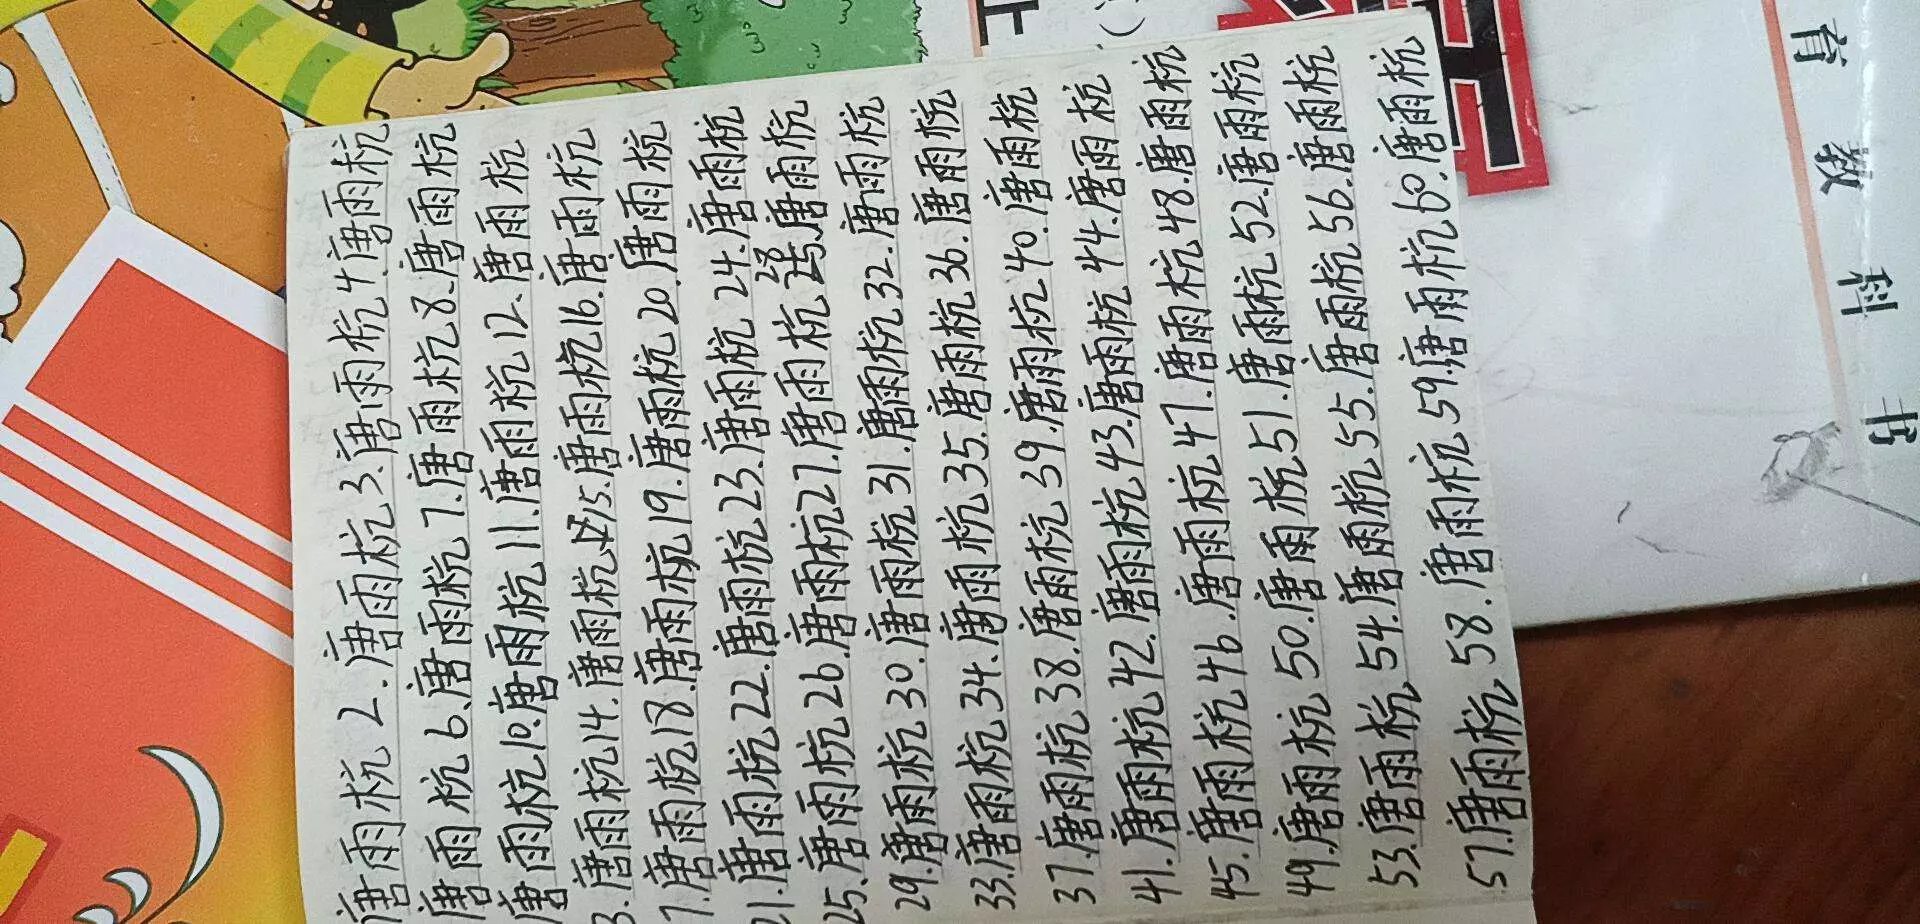 唐雨杭 2.唐雨杭 3.唐雨杭 4唐雨杭
唐雨杭 6.唐雨杭 7.唐雨杭 8.唐雨杭
唐雨杭 10.唐雨杭 11.唐雨杭 12.唐雨杭
3.唐雨杭 14.唐雨杭 15.唐雨杭 16.唐雨杭
7.唐雨杭 18.唐雨杭 19.唐雨杭 20.唐雨杭
21.唐雨杭 22.唐雨杭 23.唐雨杭 24.唐雨杭
25.唐雨杭 26.唐雨杭 27.唐雨杭 28.唐雨杭
29.唐雨杭 30.唐雨杭 31.唐雨杭 32.唐雨杭
33.唐雨杭 34.唐雨杭 35.唐雨杭 36.唐雨杭
37.唐雨杭 38.唐雨杭 39.唐雨杭 40.唐雨杭
41.唐雨杭 42.唐雨杭 43.唐雨杭 44.唐雨杭
45.唐雨杭 46.唐雨杭 47.唐雨杭 48.唐雨杭
49.唐雨杭 50.唐雨杭 51.唐雨杭 52.唐雨杭
53.唐雨杭 54.唐雨杭 55.唐雨杭 56.唐雨杭
57.唐雨杭 58.唐雨杭 59唐雨杭 60.唐雨杭
育教科书